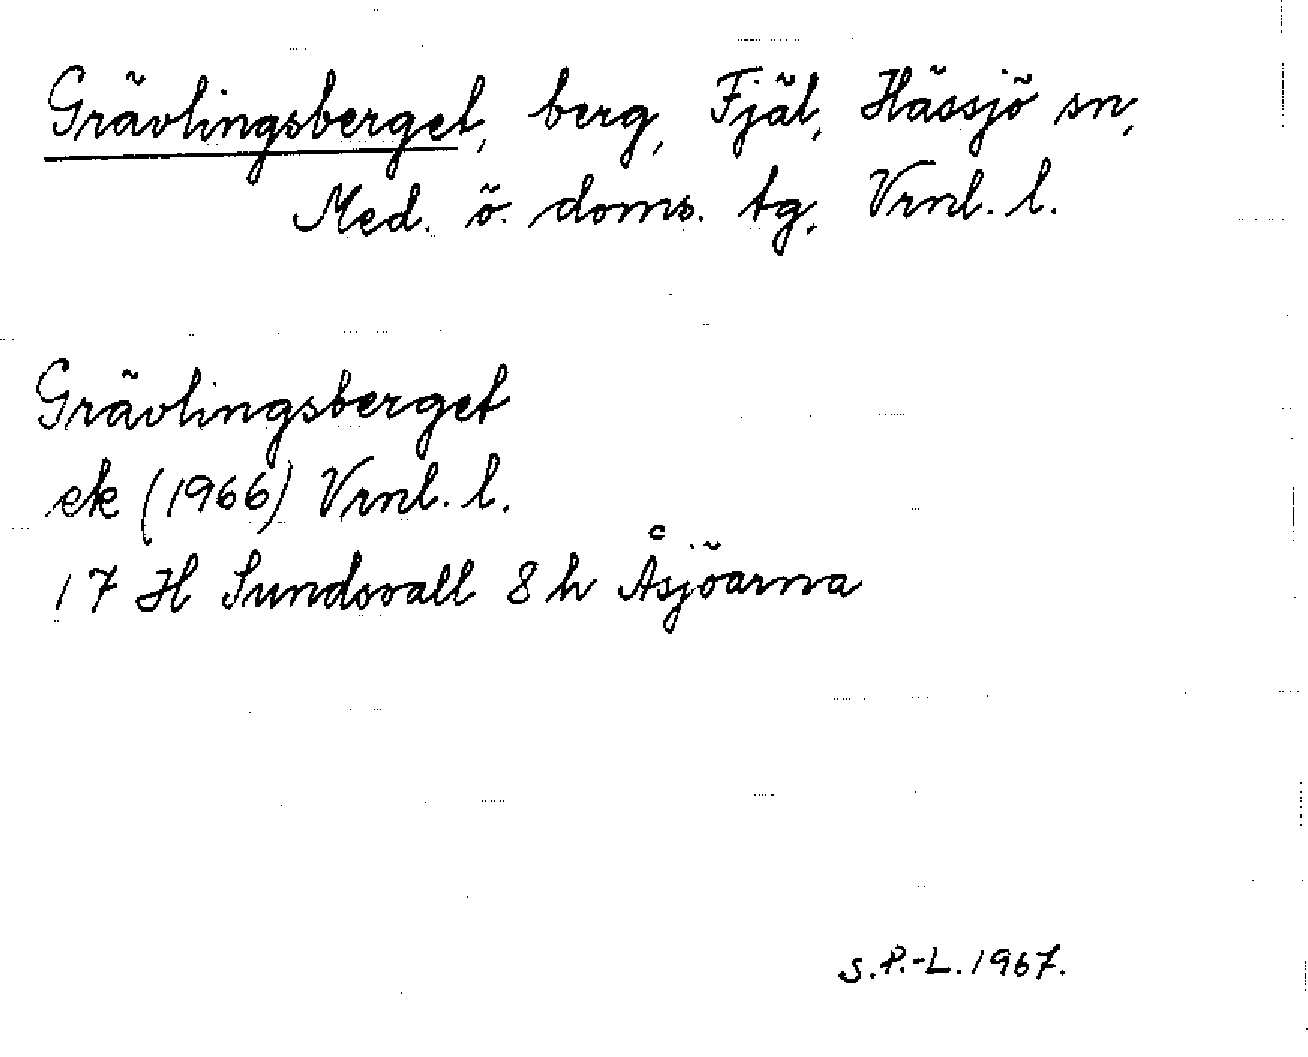 Grävlingsberget, berg, Fjäl, Hässjö sn,
Med. ö. doms. tg, Vrnl. l.
Grävlingsberget
ek (1966) Vrnl. l.
17 H Sundsvall 8 h Åsjöarna
S.P.-L. 1967.